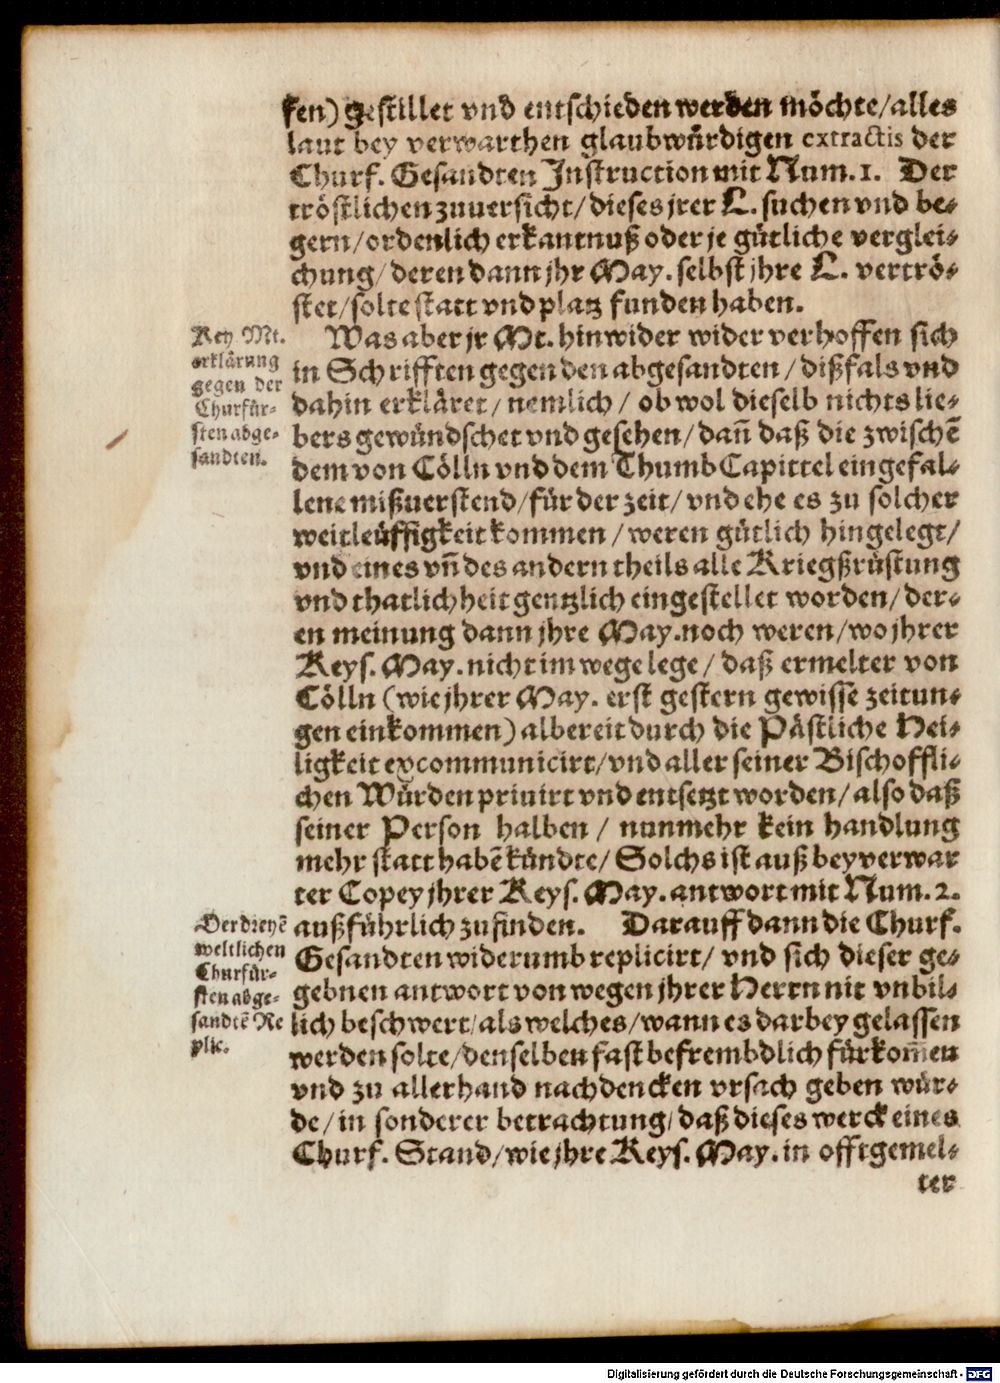 ken) gestillet vnd entschieden werden möchte/alles
laut bey verwarthen glaubwürdigen extractis der
Churf. Gesandten Instruction mit Num. 1. Der
tröstlichen zuuersicht/dieses jrer L. suchen vnd be-
gern/ordenlich erkantnuß oder je gütliche verglei-
chung/deren dann jhr May. selbst jhre L. vertrö-
stet/solte statt vnd platz funden haben.
Key Mt.
erklärung
gegen der
Churfür-
sten abge-
sandten.
Was aber jr Mt. hinwider wider verhoffen sich
in Schrifften gegen den abgesandten/dißfals vnd
dahin erkläret/nemlich/ob wol dieselb nichts lie-
bers gewündschet vnd gesehen/dañ daß die zwischẽ
dem von Cölln vnd dem Thumb Capittel eingefal-
lene mißuerstend/für der zeit/vnd ehe es zu solcher
weitleüffigkeit kommen/weren gütlich hingelegt/
vnd eines vñ des andern theils alle Kriegßrüstung
vnd thatlichheit gentzlich eingestellet worden/der-
en meinung dann jhre May. noch weren/wo jhrer
Keys. May. nicht im wege lege/daß ermelter von
Cölln (wie jhrer May. erst gestern gewisse zeitun-
gen einkommen) albereit durch die Päpstliche Hei-
ligkeit excommunicirt/vnd aller seiner Bischoffli-
chen Würden priuirt vnd entsetzt worden/also daß
seiner Person halben/nunmehr kein handlung
mehr statt habẽ kündte/Solchs ist auß beyverwar
ter Copey jhrer Keys. May. antwort mit Num. 2.
außführlich zufinden. Darauff dann die Churf.
Der dreyẽ
weltlichen
Churfür-
sten abge-
sandtẽ Re
plic.
Gesandten widerumb replicirt/vnd sich dieser ge-
gebnen antwort von wegen jhrer Herrn nit vnbil-
lich beschwert/als welches/wann es darbey gelassen
werden solte/denselben fast befrembdlich fürkom̃en
vnd zu allerhand nachdencken vrsach geben wür-
de/in sonderer betrachtung/daß dieses werck eines
Churf. Stand/wie jhre Keys. May. in offtgemel-
ter
Digitalisierung gefördert durch die Deutsche Forschungsgemeinschaft - DFG